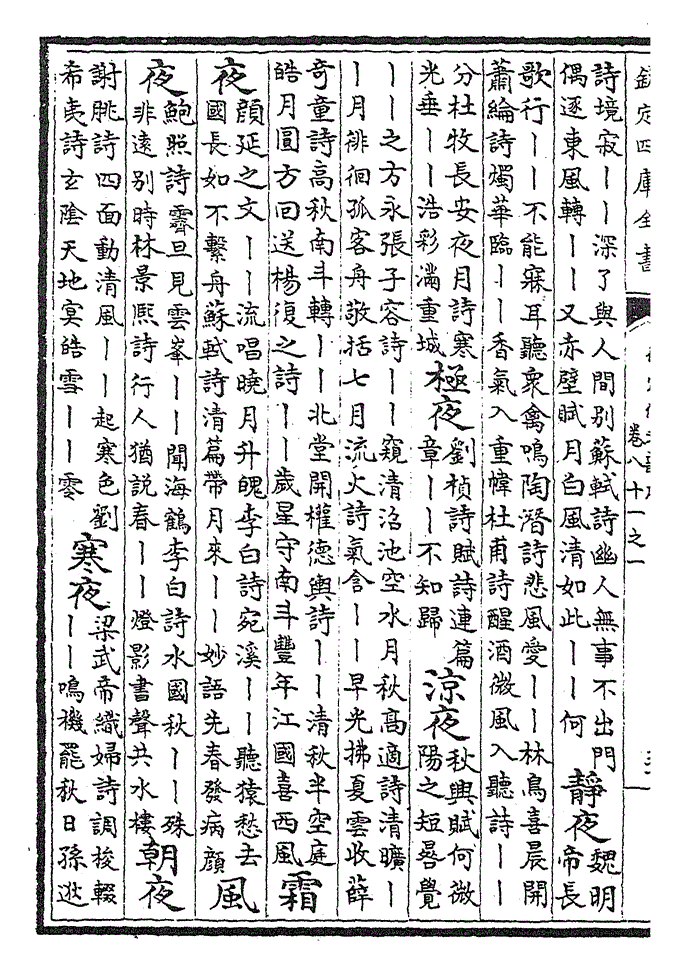 欽定四庫全書
卷八十一之一
詩境寂丨丨深了與人間別蘇軾詩幽人無事不出門
偶逐東風轉丨丨又赤壁賦月白風清如此丨丨何
靜夜
魏明
帝長
歌行丨丨不能寐耳聽衆禽鳴陶潛詩悲風愛丨丨林鳥喜晨開
蕭綸詩燭華臨丨丨香氣入重幃杜甫詩醒酒微風入聽詩丨丨
分杜牧長安夜月詩寒
光垂丨丨浩彩滿重城
極夜
劉楨詩賦詩連篇
章丨丨不知歸
涼夜
秋興賦何微
陽之短晷覺
丨丨之方永張子容詩丨丨窺清沼池空水月秋高適詩清曠丨
丨月徘徊孤客舟敬括七月流火詩氣含丨丨早光拂夏雲收薛
奇童詩高秋南斗轉丨丨北堂開權德輿詩丨丨清秋半空庭
皓月圓方回送楊復之詩丨丨歲星守南斗豐年江國喜西風
霜
夜
顔延之文丨丨流唱曉月升魄李白詩宛溪丨丨聽猿愁去
國長如不繫舟蘇軾詩清篇帶月來丨丨妙語先春發病顔
風
夜
鮑照詩霽旦見雲峯丨丨聞海鶴李白詩水國秋丨丨殊
非遠別時林景熙詩行人猶説春丨丨燈影書聲共水樓
朝夜
謝朓詩四面動清風丨丨起寒色劉
希夷詩玄陰天地冥皓雪丨丨零
寒夜
梁武帝織婦詩調梭輟
丨丨鳴機罷秋日孫逖